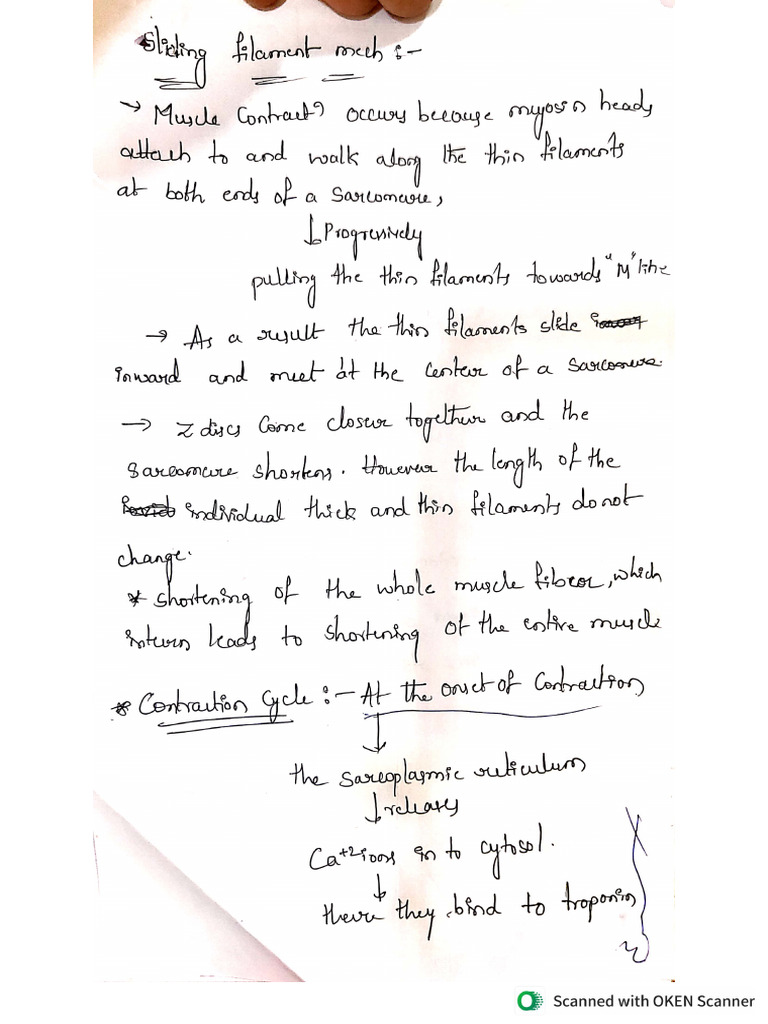 Sliding filament mech :-
→ Muscle Contractn occurs because myosin heads
attach to and walk along the thin filaments
at both ends of a sarcomere,
↓ Progressively
pulling the thin filaments towards "M" line
→ As a result the thin filaments slide
inward and meet at the center of a sarcomere.
→ Z discs come closer together and the
sarcomere shortens. However the length of the
individual thick and thin filaments do not
change.
* shortening of the whole muscle fiber, which
inturn leads to shortening of the entire muscle
* Contraction Cycle :- At the onset of Contraction
↓
the sarcoplasmic reticulum
↓ releases
Ca+2 ions in to cytosol.
↓
there they bind to troponin
Scanned with OKEN Scanner